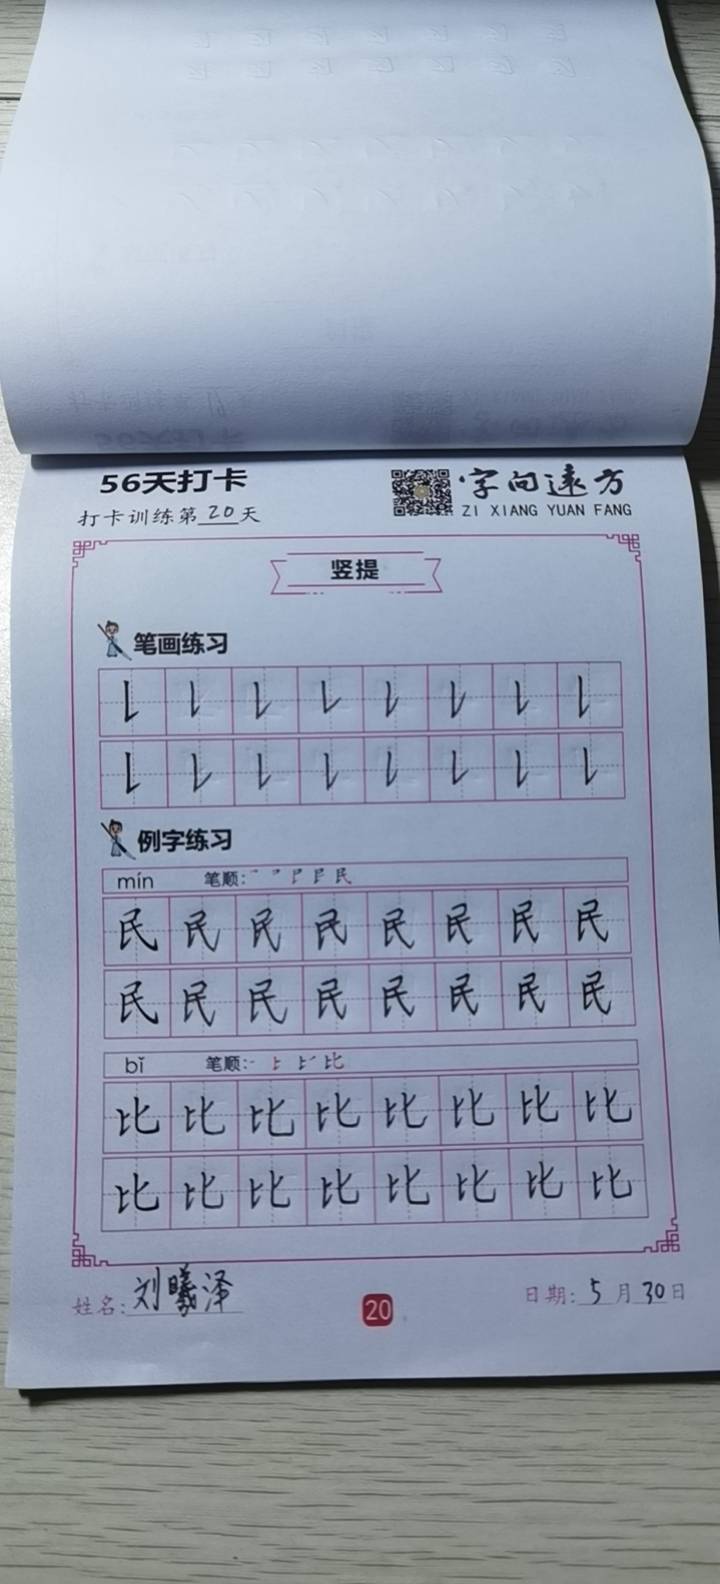 56天打卡
字向远方
打卡训练第20天
ZI XIANG YUAN FANG
竖提
笔画练习
例字练习
mín 笔顺:
民民民民民民民民
民民民民民民民民
bǐ 笔顺:
比比比比比比比比
比比比比比比比比
姓名:刘曦泽
20
日期:5月30日